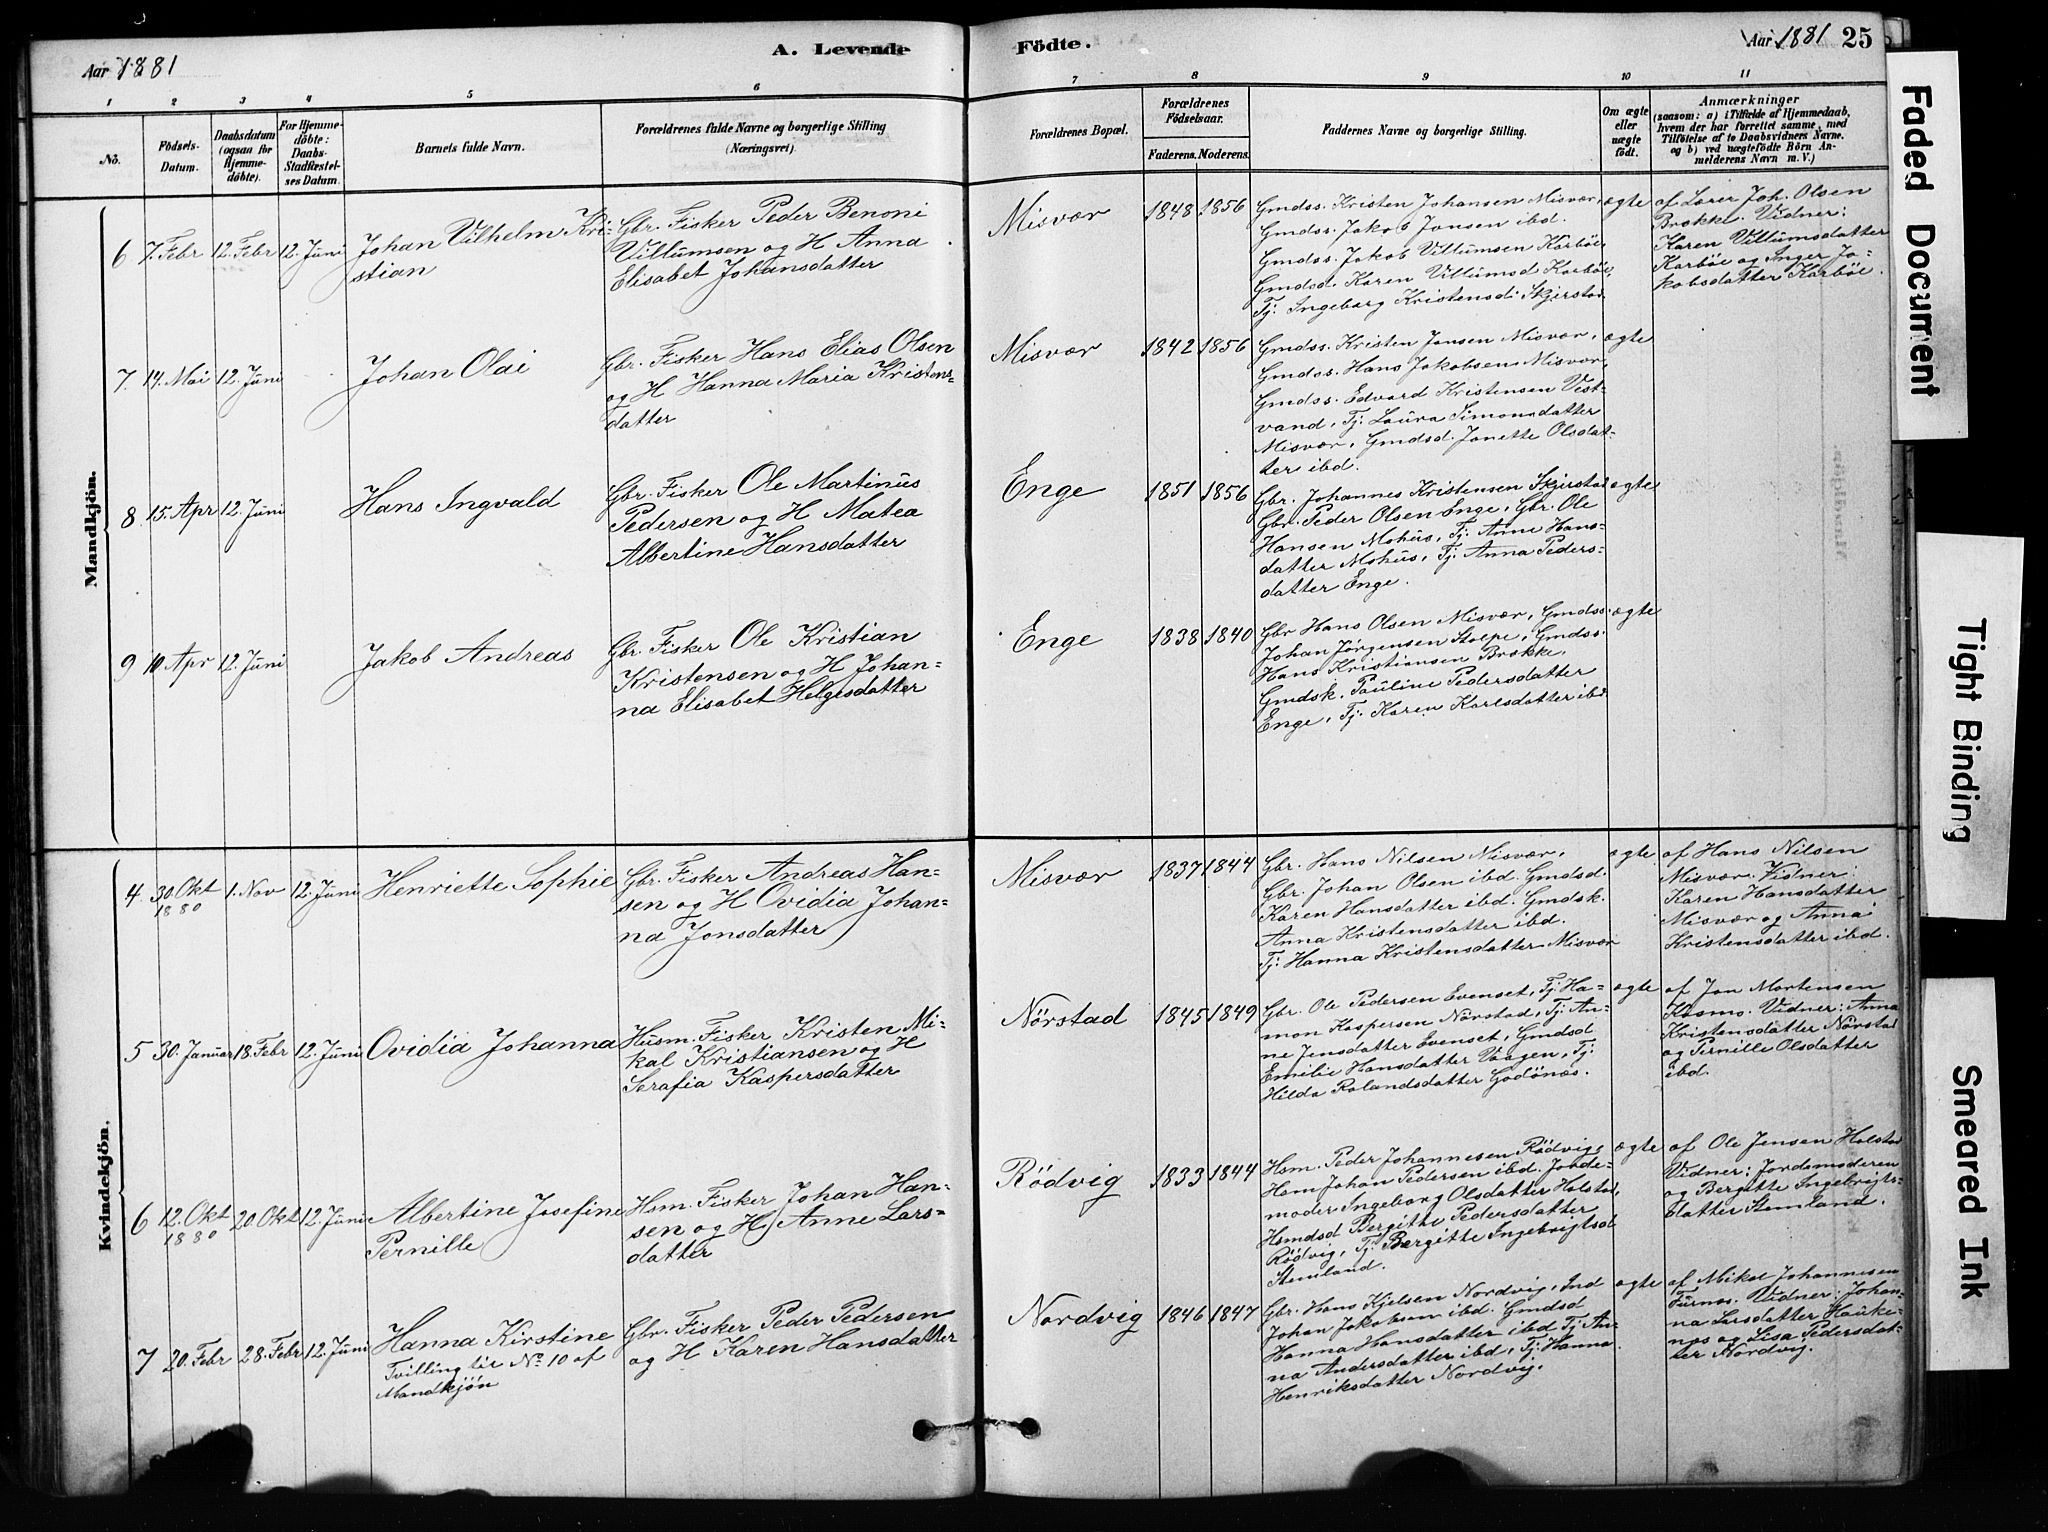 Aar 1881
A. Levende
Födte.
Aar 1881 25
1 2 3 4 5 6 7 8 9 10 11
No.
Födsels-
Datum.
Daabsdatum
(ogsaa for
Hjemme-
döbte).
For Hjemme-
döbte:
Daabs-
Stadfæstel-
ses Datum.
Barnets fulde Navn.
Forældrenes fulde Navne og borgerlige Stilling
(Næringsvei).
Forældrenes Bopæl.
Forældrenes
Födselsaar.
Faderens. Moderens.
Faddernes Navne og borgerlige Stilling.
Om ægte
eller
uægte
födt.
Anmærkninger
(saasom: a) i Tilfælde af Hjemmedaab,
hvem der har forrettet samme, med
Tilföielse af to Daabsvidners Navne.
og b) ved uægtefödte Börn An-
melderens Navn m. V.)
Mandkjön.
6 7. Febr 12. Febr 12. Juni
Johan Vilhelm Kri-
stian
Gbr. Fisker Peder Benoni
Villumsen og H Anna
Elisabet Johansdatter
Misvær 1848 1856
Gmdss. Kristen Johansen Misvær,
Gmdss. Jakob Jonsen ibd.
Gmdss. Jakob Villumsen Karbøe,
Gmdsd. Karen Villumsd Karbøe,
Tj. Ingeborg Kristensd. Skjerstad
ægte
af Lærer Joh. Olsen
Brokke. Vidner:
Karen Villumsdatter
Karbøe og Inger Ja-
kobsdatter Karbøe.
7 14. Mai 12. Juni
Johan Olai
Gbr. Fisker Hans Elias Olsen
og H Hanna Maria Kristens-
datter
Misvær 1842 1856
Gmdss. Kristen Jonsen Misvær,
Gmdss. Hans Jakobsen Misvær,
Gmdss. Edvard Kristensen Vest-
vand, Tj. Laura Simonsdatter
Misvær, Gmdsd. Janette Olsdat-
ter ibd.
ægte
8 15. Apr 12. Juni
Hans Ingvald
Gbr. Fisker Ole Martinus
Pedersen og H Matea
Albertine Hansdatter
Enge 1851 1856
Gbr. Johannes Kristensen Skjerstad
Gbr. Peder Olsen Enge, Gbr. Ole
Hansen Mohus, Tj. Anne Hans-
datter Mohus, Tj. Anna Peders-
datter Enge.
ægte
9 10. Apr 12. Juni
Jakob Andreas
Gbr. Fisker Ole Kristian
Kristensen og H Johan-
na Elisabet Helgesdatter
Enge 1838 1840
Gbr Hans Olsen Misvær, Gmdss.
Johan Jørgensen Stolpe, Gmdss.
Hans Kristiansen Brokke,
Gmdsk. Pauline Pedersdatter
Enge, Tj. Karen Karlsdatter ibd
ægte
Kvindekjön.
4 30. Okt 1. Nov 12. Juni
1880
Henriette Sophie
Gbr. Fisker Andreas Han-
sen og H Ovidia Johan-
na Jonsdatter
Misvær 1837 1844
Gbr. Hans Nilsen Misvær,
Gbr. Johan Olsen ibd. Gmdsd.
Karen Hansdatter ibd. Gmdsk.
Anna Kristensdatter ibd.
Tj. Hanna Kristensdatter Misvær
ægte
af Hans Nilsen
Misvær. Vidner:
Karen Hansdatter
Misvær og Anna
Kristensdatter ibd.
5 30. Januar 18. Febr 12. Juni
Ovidia Johanna
Husm. Fisker Kristen Mi-
kal Kristiansen og H
Serafia Kaspersdatter
Nörstad 1845 1849
Gbr. Ole Pedersen Evenset, Tj. Ha-
mon Kaspersen Nörstad, Tj. An-
ne Jensdatter Evenset, Gmdsd
Emilie Hansdatter Vaagen, Tj.
Hilda Rolandsdatter Godönæs.
ægte
af Jon Mortensen
Kosmo. Vidner: Anna
Kristensdatter Nörstad
og Pernille Olsdatter
ibd.
6 12. Okt 20. Okt 12. Juni
1880
Albertine Josefine
Pernille
Hsm. Fisker Johan Han-
sen og H. Anne Lars-
datter
Rödvig 1833 1844
Hsm. Peder Johannesen Rödvig,
Hsm Johan Pedersen ibd. Jorde-
moder Ingeborg Olsdatter Holstad,
Hsmdsd Bergitte Pedersdatter
Rödvig, Tj. Bergitte Ingebrigtsd
Stemland.
ægte
af Ole Jensen Holstad
Vidner: Jordemoderen
og Bergitte Ingebrigts-
datter Stemland.
7 20. Febr 28. Febr 12. Juni
Hanna Kirstine
Tvilling til No 10 af
Mandkjön
Gbr. Fisker Peder Pedersen
og H Karen Hansdatter
Nordvig 1846 1847
Gbr. Hans Kjelsen Nordvig, Ind
Johan Jakobsen ibd. Gmdsd
Hanna Hansdatter ibd Tj. An-
na Andersdatter ibd, Tj. Hanna
Henriksdatter Nordvig.
ægte
af Mikal Johannesen
Furnæs. Vidner: Johan-
na Larsdatter Hauke-
næs og Lisa Pedersdat-
ter Nordvig.
Faded Document
Tight Binding
Smeared Ink